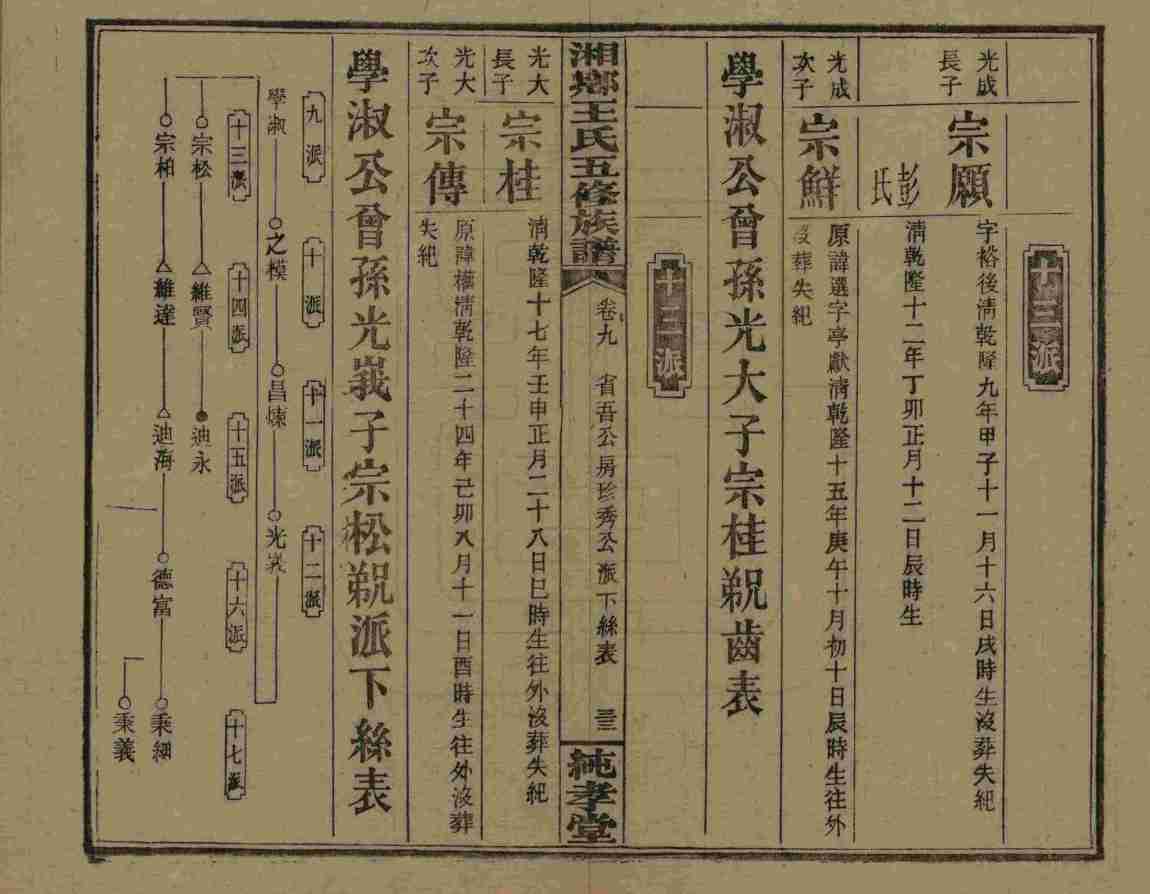 十三派
光成長子
宗願
字裕後清乾隆九年甲子十一月十六日戌時生沒葬失紀
彭氏
清乾隆十二年丁卯正月十二日辰時生
光成次子
宗鮮
原諱選字亭獻清乾隆十五年庚午十月初十日辰時生往外
沒葬失紀
學淑公曾孫光大子宗桂鮮齒表
十三派
湘鄉王氏五修族譜
卷九
省吾公房珍秀公派下絲表
三三
純孝堂
光大長子
宗桂
清乾隆十七年壬申正月二十八日巳時生往外沒葬失紀
光大次子
宗傳
原諱權清乾隆二十四年己卯八月十一日酉時生往外沒葬
失紀
學淑公曾孫光義子宗松派下絲表
九派
十派
十一派
十二派
學淑
之模
昌煉
光義
十三派
十四派
十五派
十六派
十七派
宗松
維賢
迪永
宗柏
維達
迪海
德富
秉綱
秉義